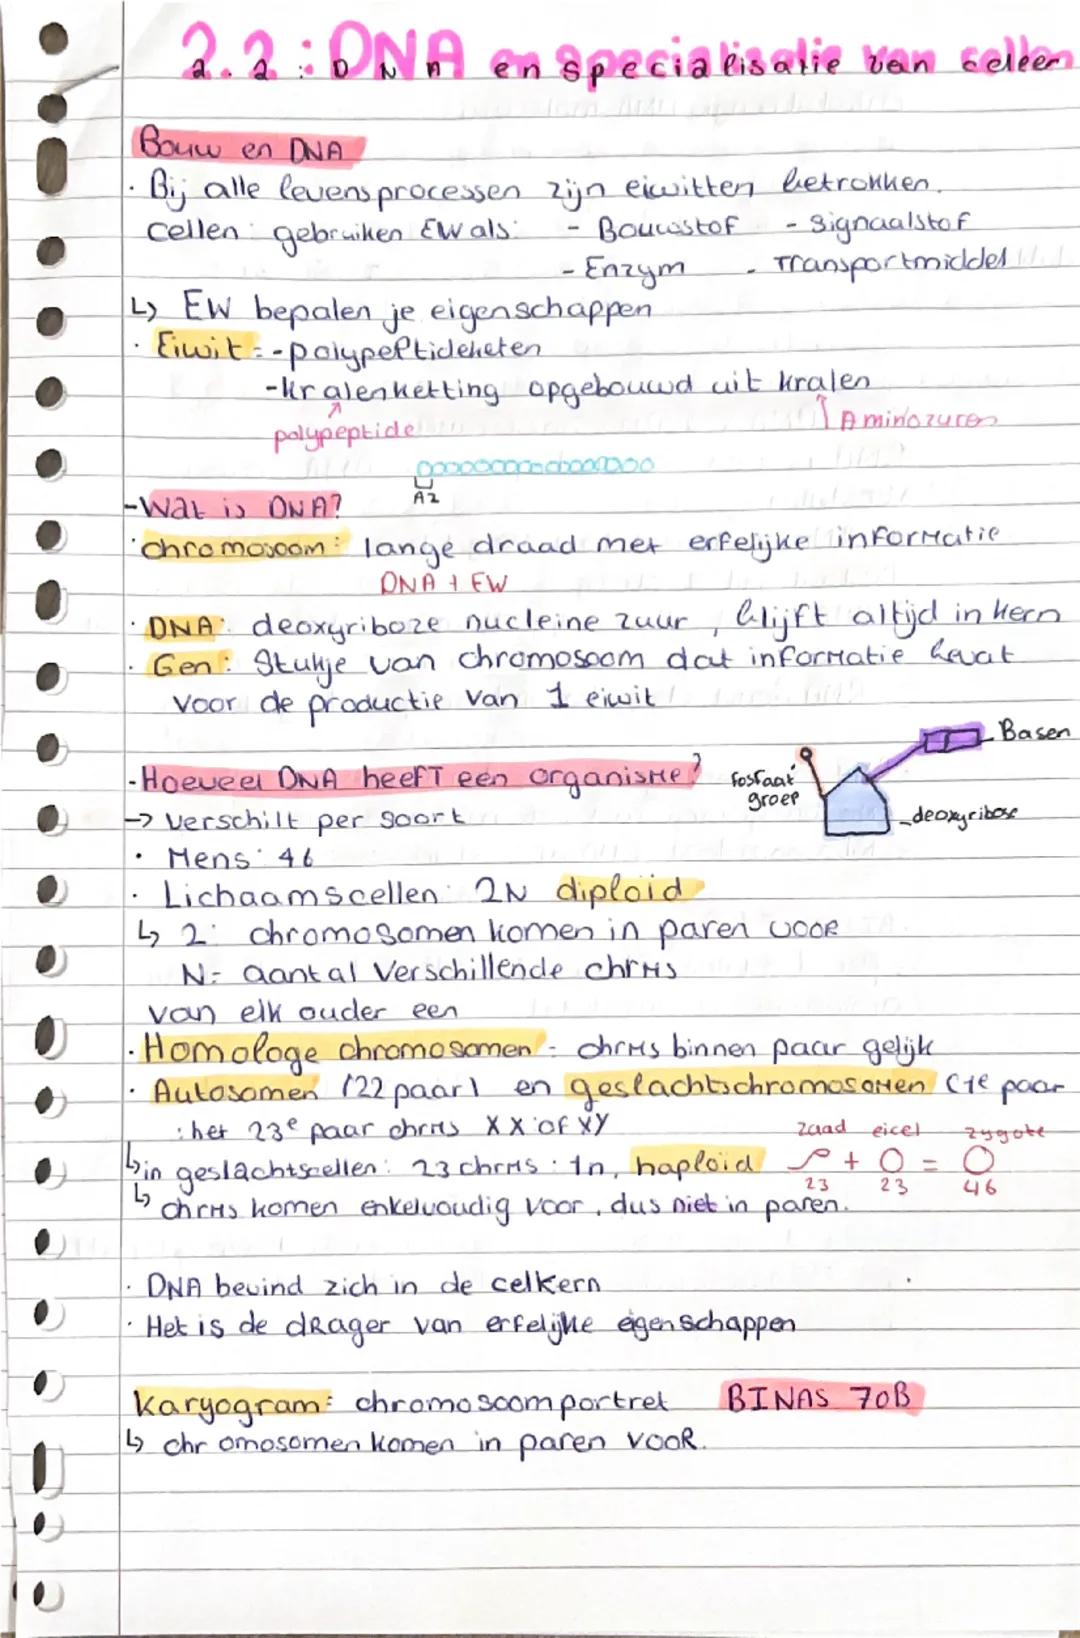 2.2: DNA en specialisatie van cellen
Bouw en DNA
· Bij alle levensprocessen zijn eiwitten betrokken.
cellen gebruiken EW als: - Bouwstof - Signaalstof
- Enzym - Transportmiddel
↳ EW bepalen je eigenschappen
· Eiwit = - polypeptideketen
- kralenketting opgebouwd uit kralen
polypeptide Aminozuren
AZ
- Wat is DNA?
· chromosoom: lange draad met erfelijke informatie
DNA + EW
· DNA: deoxyriboze nucleine zuur, blijft altijd in kern
· Gen: Stukje van chromosoom dat informatie bevat
voor de productie van 1 eiwit
Basen
- Hoeveel DNA heeft een organisme?
fosfaat groep
deoxyribose
→ verschilt per soort
· Mens: 46
· Lichaamscellen: 2N diploïd
↳ 2: chromosomen komen in paren voor
N: aantal verschillende chrms
van elk ouder een
· Homologe chromosomen - chrms binnen paar gelijk
· Autosomen (22 paar) en geslachtschromosomen (1e paar
: het 23e paar chrms XX of XY
zaad eicel zygote
↳ in geslachtscellen: 23 chrms: 1n, haploïd + =
23 23 46
↳ chrms komen enkelvoudig voor, dus niet in paren.
· DNA bevind zich in de celkern
· Het is de drager van erfelijke eigenschappen
Karyogram: chromosoomportret BINAS 70B
↳ chromosomen komen in paren voor.